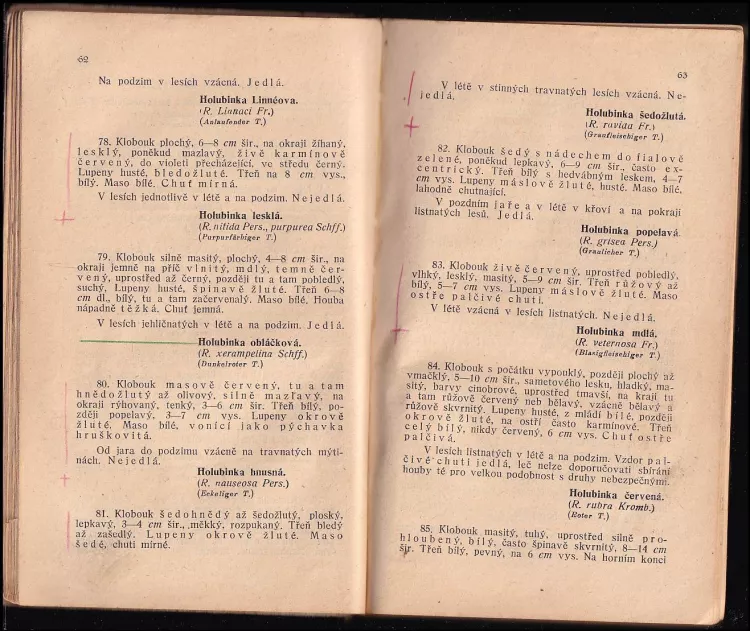 62
Na podzim v lesích vzácná. Jedlá.
Holubinka Linnéova.
(R. Linnaci Fr.)
(Anlaufender T.)
78. Klobouk plochý, 6—8 cm šir., na okraji žíhaný,
lesklý, poněkud mazlavý, živě karmínově
červený, do violeti přecházející, ve středu černý.
Lupeny husté, bledožluté. Třeň na 8 cm vys.,
bílý. Maso bílé. Chuť mírná.
V lesích jednotlivě v létě a na podzim. Nejedlá.
Holubinka lesklá.
(R. nitida Pers., purpurea Schff.)
(Purpurfärbiger T.)
79. Klobouk silně masitý, plochý, 4—8 cm šir., na
okraji jemně na příč vlnitý, mdlý, temně čer-
vený, uprostřed až černý, později tu a tam pobledlý,
suchý. Lupeny husté, špinavě žluté. Třeň 6—8
cm dl., bílý, tu a tam začervenalý. Maso bílé. Houba
nápadně těžká. Chuť jemná.
V lesích jehličnatých v létě a na podzim. Jedlá.
Holubinka obláčková.
(R. xerampelina Schff.)
(Dunkelroter T.)
80. Klobouk masově červený, tu a tam
hnědožlutý až olivový, silně mazľavý, na
okraji rýhovaný, tenký, 3—6 cm šir. Třeň bílý, po-
zději popelavý, 3—7 cm vys. Lupeny okrově
žluté. Maso bílé, vonící jako pýchavka
hruškovitá.
Od jara do podzimu vzácně na travnatých mýti-
nách. Nejedlá.
Holubinka hnusná.
(R. nauseosa Pers.)
(Eckeliger T.)
81. Klobouk šedohnědý až šedožlutý, ploský,
lepkavý, 3—4 cm šir., měkký, rozpukaný. Třeň bledý
až zašedlý. Lupeny okrově žluté. Maso
šedé, chuti mírné.
63
V létě v stinných travnatých lesích vzácná. Ne-
jedlá.
Holubinka šedožlutá.
(R. ravida Fr.)
(Graufleischiger T.)
82. Klobouk šedý s nádechem do fialově
zelené, poněkud lepkavý, 6—9 cm šir., často ex-
centrický. Třeň bílý s hedvábným leskem, 4—7
cm vys. Lupeny máslově žluté, husté. Maso bílé,
lahodně chutnající.
V pozdním jaře a v létě v křoví a na pokraji
listnatých lesů. Jedlá.
Holubinka popelavá.
(R. grisea Pers.)
(Graulicher T.)
83. Klobouk živě červený, uprostřed pobledlý,
vlhký, lesklý, masitý, 5—9 cm šir. Třeň růžový až
bílý, 5—7 cm vys. Lupeny máslově žluté. Maso
ostře palčivé chuti.
V létě vzácná v lesích listnatých. Nejedlá.
Holubinka mdlá.
(R. veternosa Fr.)
(Blasigfleischiger T.)
84. Klobouk s počátku vypouklý, později plochý až
vmačklý, 5—10 cm šir., sametového lesku, hladký, ma-
sitý, barvy cinobrové, uprostřed tmavší, na kraji tu
a tam růžově červený neb bělavý, vzácně bělavý a
růžově skvrnitý. Lupeny husté, z mládí bílé, později
okrově žluté, na ostří často karmínové. Třeň
celý bílý, nikdy červený, 6 cm vys. Chuť ostře
palčivá.
V lesích listnatých v létě a na podzim. Vzdor pal-
čivé chuti jedlá, leč nelze doporučovati sbírání
houby té pro velkou podobnost s druhy nebezpečnými.
Holubinka červená.
(R. rubra Kromb.)
(Roter T.)
85. Klobouk masitý, tuhý, uprostřed silně pro-
hloubený, bílý, často špinavě skvrnitý, 8—14 cm
šir. Třeň bílý, pevný, na 6 cm vys. Na horním konci